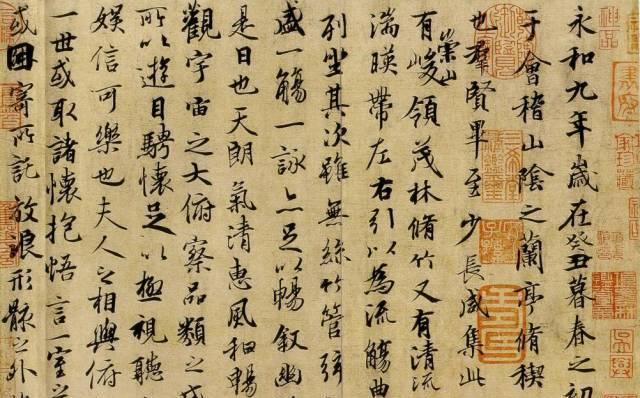 神品
永和九年歲在癸丑暮春之初
于會稽山陰之蘭亭脩稧
也群賢畢至少長咸集此
有崇山峻領茂林脩竹又有清流
湍暎帶左右引以為流觴曲
列坐其次雖無絲竹管弦
盛一觴一詠亦足以暢敘幽
是日也天朗氣清惠風和暢
觀宇宙之大俯察品類之盛
所以遊目騁懷足以極視聽
娛信可樂也夫人之相與俯
一世或取諸懷抱悟言一室之
或因寄所託放浪形骸之外